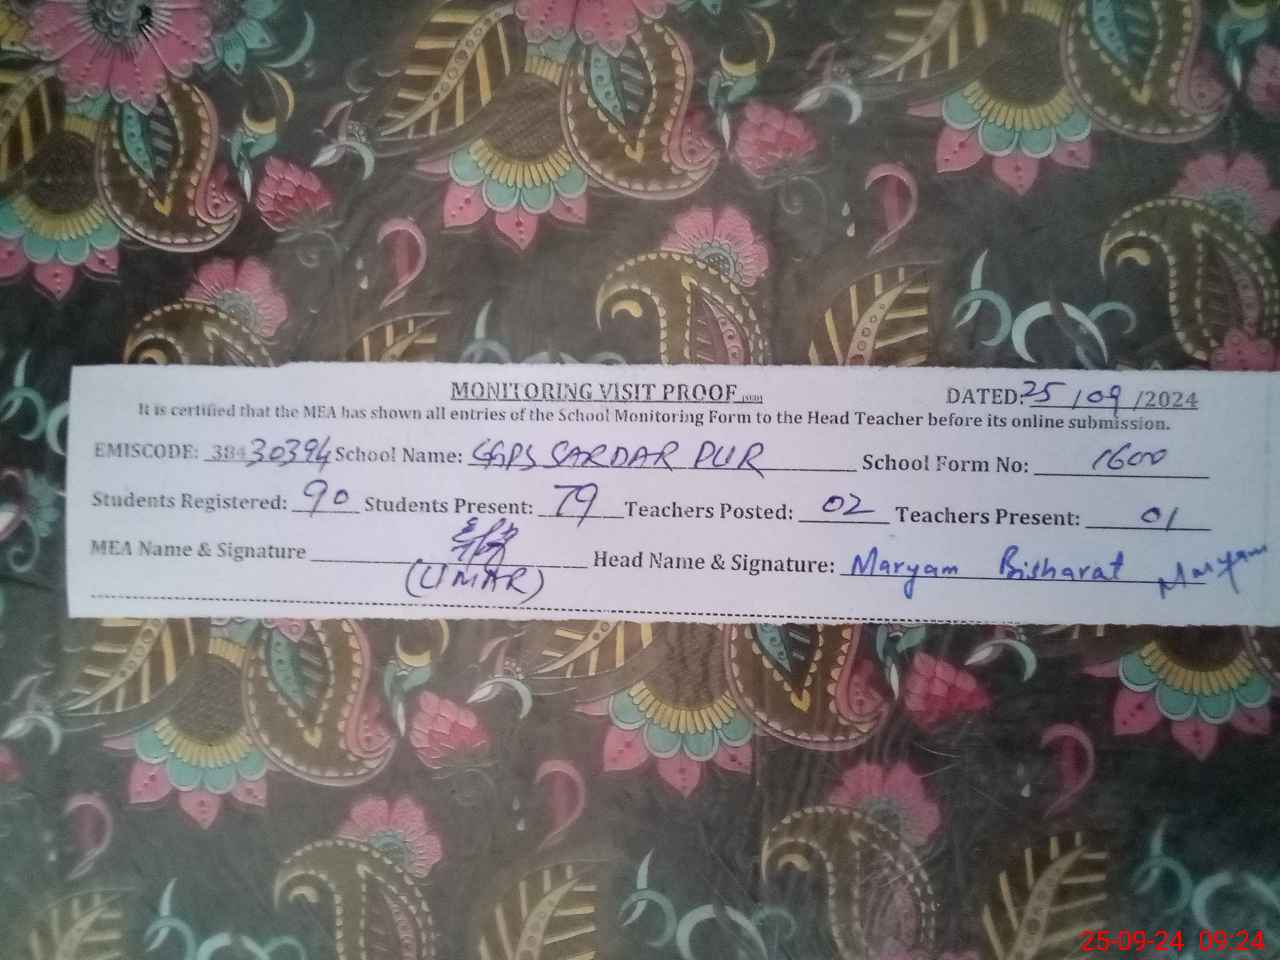 MONITORING VISIT PROOF (SED) DATED: 25/09/2024
It is certified that the MEA has shown all entries of the School Monitoring Form to the Head Teacher before its online submission.
EMISCODE: 38430394 School Name: GGPS SARDAR PUR School Form No: 1600
Students Registered: 90 Students Present: 79 Teachers Posted: 02 Teachers Present: 01
MEA Name & Signature Head Name & Signature: Maryam Bisharat Maryam
(UMAR)
25-09-24 09:24